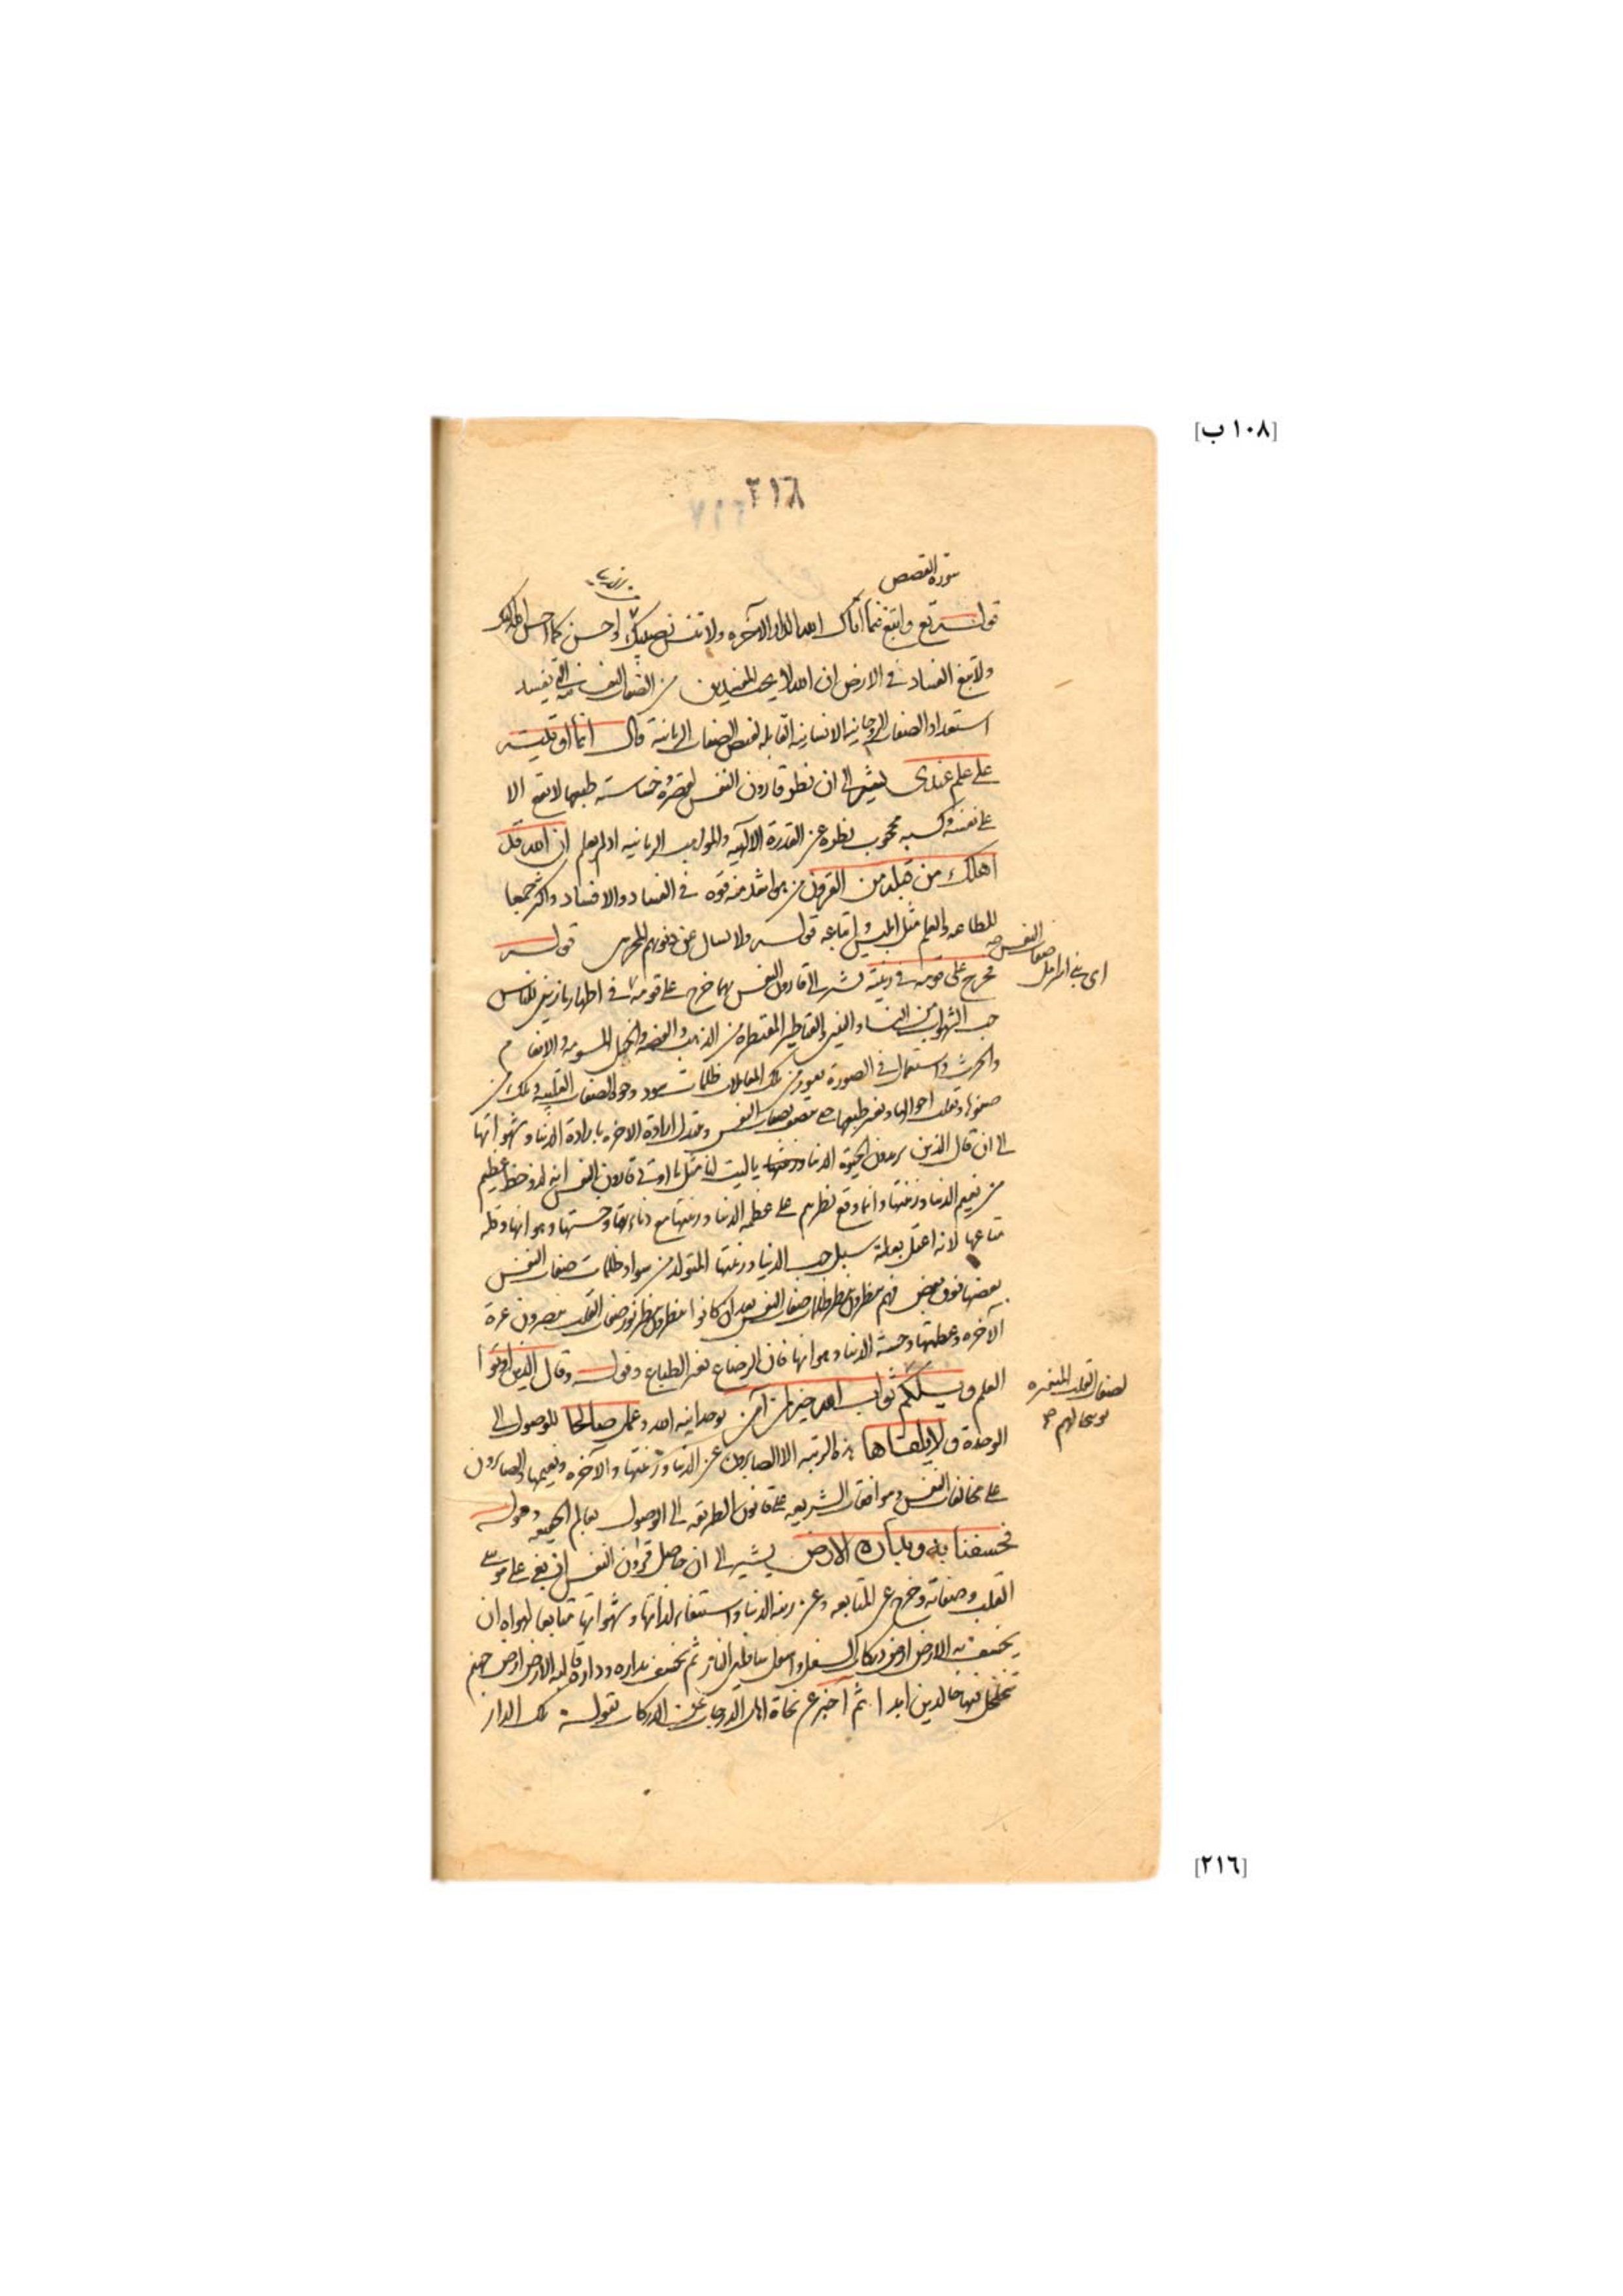 [١٠٨ ب]
٢١٨
سورة القصص
قوله تع وابتغ فيما اتاك الله الدار الآخره ولا تنس نصيبك واحسن كما احسن الله اليك
ولا تبغ الفساد في الارض ان الله لا يحب المفسدين من الصفات النفسانيه التي تفسد
استعداد الصفات الروحانيه الانسانيه القابله لفيض الصفات الربانية قال انما اوتيته
على علم عندى يشير الى ان نظر قارون النفس لقصره وخساسته طبعها لا يقع الا
على نفسه وكسبه محجوب نظره عن القدرة الآلهيه والمواهب الربانيه اولم يعلم ان الله قد
اهلك من قبله من القرون من هو اشد منه قوه في الفساد والافساد واكثر جمعا
للطاعه والعلم مثل ابليس واتباعه قوله ولا يسال عن ذنوبهم المجرمون قوله
اى بنى اسرائيل صفات النفس صح
فخرج على قومه في زينته يشير الى قارون النفس مهما خرج على قومه في اظهار ما زين للناس
حب الشهوات من النساء والبنين والقناطير المقنطره من الذهب والفضه والخيل المسومه والانعام
والحرث واستعمال في الصورة من تلك المعاملات ظلمات وجوه الصفات القلبيه
صفوها وتقلب احوالها وتغير طبعها حتى بصفات النفس وتبدل ارادة الاخره بارادة الدنيا وشهواتها
الى ان قال الذين يريدون الحيوة الدنيا وزينتها ياليت لنا مثل ما اوتى قارون النفس انه لذو حظ عظيم
من نعيم الدنيا وزينتها وانما وقع نظرهم على عظمه الدنيا وزينتها مع دناءتها وخستها وهوانها وقله
متاعها لانه سبل حب الدنيا وزينتها المتولد من سواد ظلمات صفات النفس
بعضها فوق بعض فهم ينظرون بنظر ظلمات صفات النفس بعد ان كانوا ينظرون بنظر نور صفات القلب يبصرون عزة
الآخره وعظمتها وخسة الدنيا وهوانها فان الرضاع يغير الطباع وقوله وقال الذين اوتوا
العلم ويلكم ثواب الله خير لمن آمن بوحدانيه الله وعمل صالحا للوصول الى
لصفات القلب المتغيره
الوحدة ولا يلقاها هذه الرتبه الا الصابرون عن الدنيا وزينتها والآخره ونعيمها والصابرون
على مخالفات النفس وموافقات الشريعه على قانون الطريقه الى الوصول بعالم الحقيقه وقوله
فخسفنا به وبداره الارض يشير الى ان حاصل قارون النفس ان بغى على موسى
القلب وصفاته وخرج عن المتابعه وعن زينه الدنيا واستيفاء لذاتها وشهواتها متابعا لهواه ان
يخسف به الارض ارض دركات السفل واسفل سافلين النار ثم يخسف بداره وداره قالبه الارض ارض جهنم
فيها خالدين ابدا ثم اخبر عن نجاة اهل الدرجات عن الدركات بقوله تلك الدار
[٢١٦]